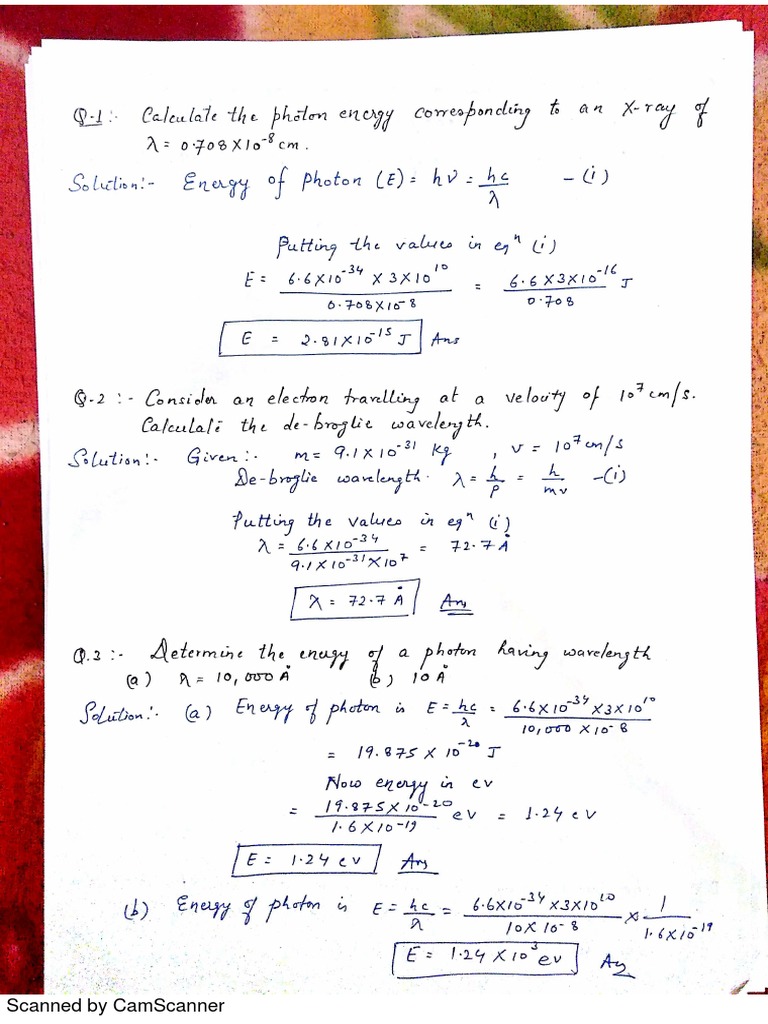 Q.1:- Calculate the photon energy corresponding to an X-ray of
λ = 0.708 X 10⁻⁸ cm.
Solution:- Energy of photon (E) = hν = hc/λ - (i)
Putting the values in eqⁿ (i)
E = 6.6 X 10⁻³⁴ X 3 X 10¹⁰ / 0.708 X 10⁻⁸ = 6.6 X 3 X 10⁻¹⁶ / 0.708 J
E = 2.81 X 10⁻¹⁵ J Ans
Q.2:- Consider an electron travelling at a velocity of 10⁷ cm/s.
Calculate the de-broglie wavelength.
Solution:- Given:- m = 9.1 X 10⁻³¹ kg , v = 10⁷ cm/s
De-broglie wavelength. λ = h/p = h/mv -(i)
Putting the values in eqⁿ (i)
λ = 6.6 X 10⁻³⁴ / 9.1 X 10⁻³¹ X 10⁷ = 72.7 Å
λ = 72.7 Å Ans
Q.3:- Determine the energy of a photon having wavelength
(a) λ = 10,000 Å (b) 10 Å
Solution:- (a) Energy of photon is E = hc/λ = 6.6 X 10⁻³⁴ X 3 X 10¹⁰ / 10,000 X 10⁻⁸
= 19.875 X 10⁻²⁰ J
Now energy in ev
= 19.875 X 10⁻²⁰ / 1.6 X 10⁻¹⁹ eV = 1.24 eV
E = 1.24 ev Ans
(b) Energy of photon is E = hc/λ = 6.6 X 10⁻³⁴ X 3 X 10¹⁰ / 10 X 10⁻⁸ X 1 / 1.6 X 10⁻¹⁹
E = 1.24 X 10³ ev Ans
Scanned by CamScanner